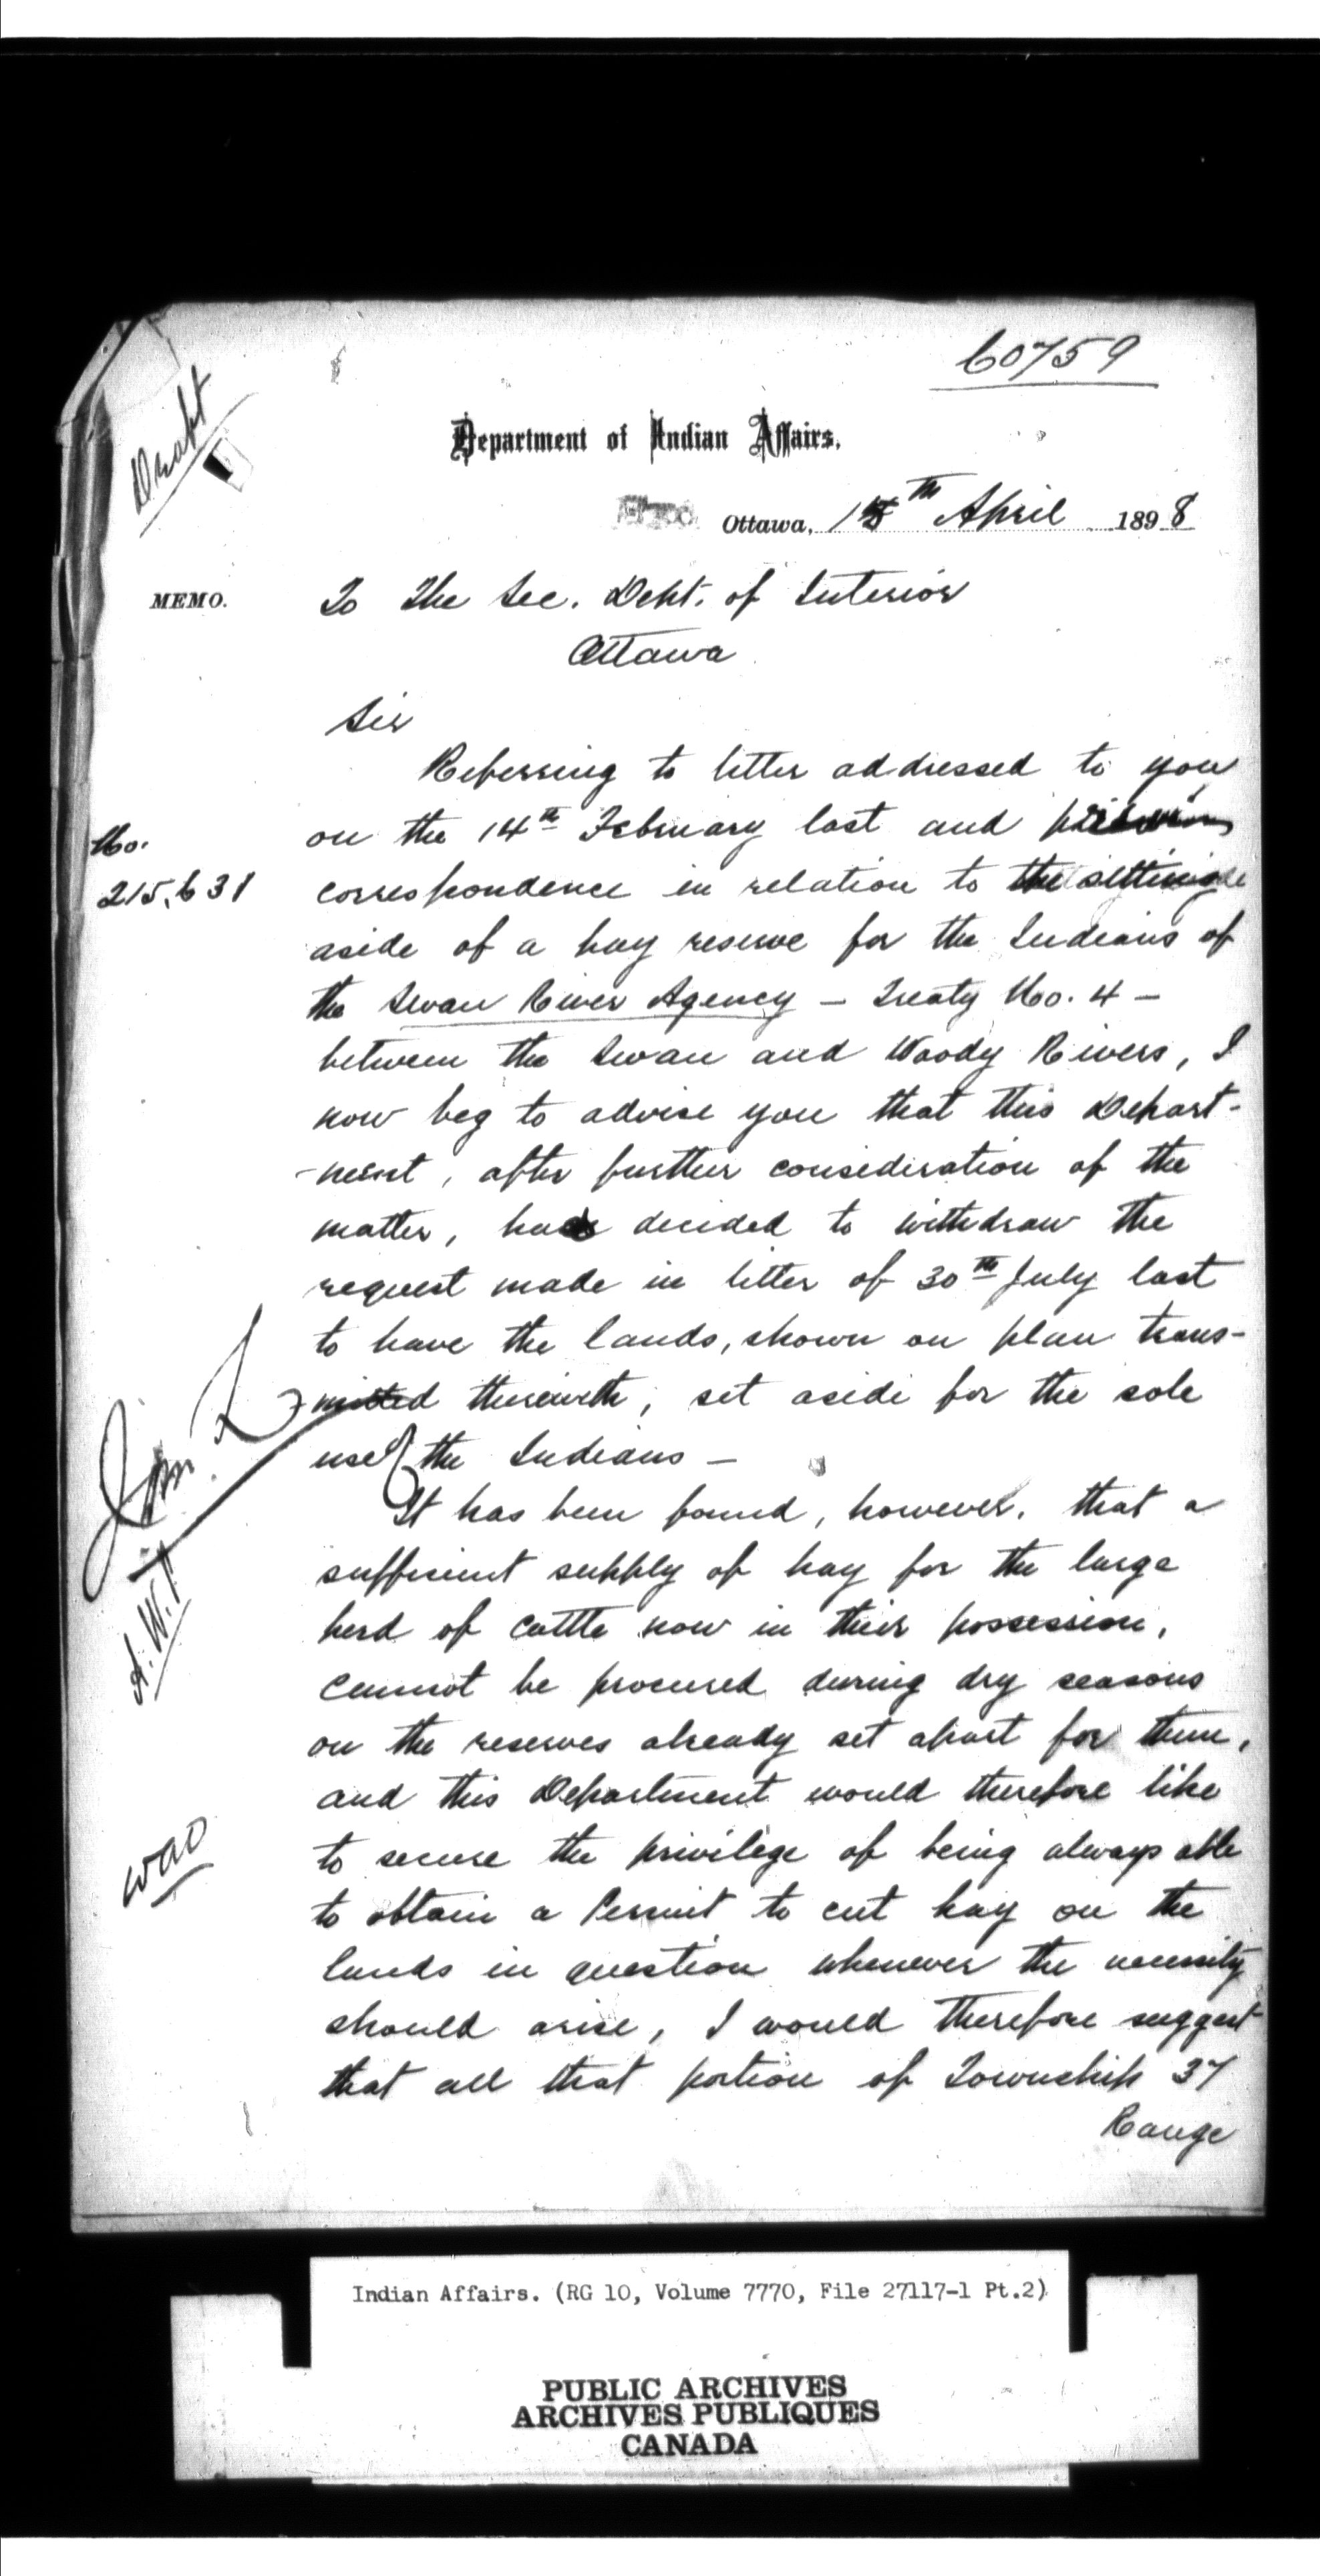 60759
Draft
Department of Indian Affairs.
Ottawa, 15th April 1898
MEMO.
To The Sec. Dept. of Interior
Ottawa
Sir
Referring to letter addressed to you
on the 14th February last and previous
No.
215,631
correspondence in relation to the setting
aside of a hay reserve for the Indians of
the Swan River Agency – Treaty No. 4 –
between the Swan and Woody Rivers, I
now beg to advise you that this Depart-
-ment, after further consideration of the
matter, has decided to withdraw the
request made in letter of 30th July last
to have the lands, shown on plan trans-
mitted therewith, set aside for the sole
use of the Indians –
It has been found, however, that a
sufficient supply of hay for the large
herd of cattle now in their possession,
cannot be procured during dry seasons
on the reserves already set apart for them,
and this Department would therefore like
to secure the privilege of being always able
to obtain a Permit to cut hay on the
lands in question whenever the necessity
should arise, I would therefore suggest
that all that portion of Township 37
Range
A.W.
WAO
Indian Affairs. (RG 10, Volume 7770, File 27117-1 Pt.2)
PUBLIC ARCHIVES
ARCHIVES PUBLIQUES
CANADA